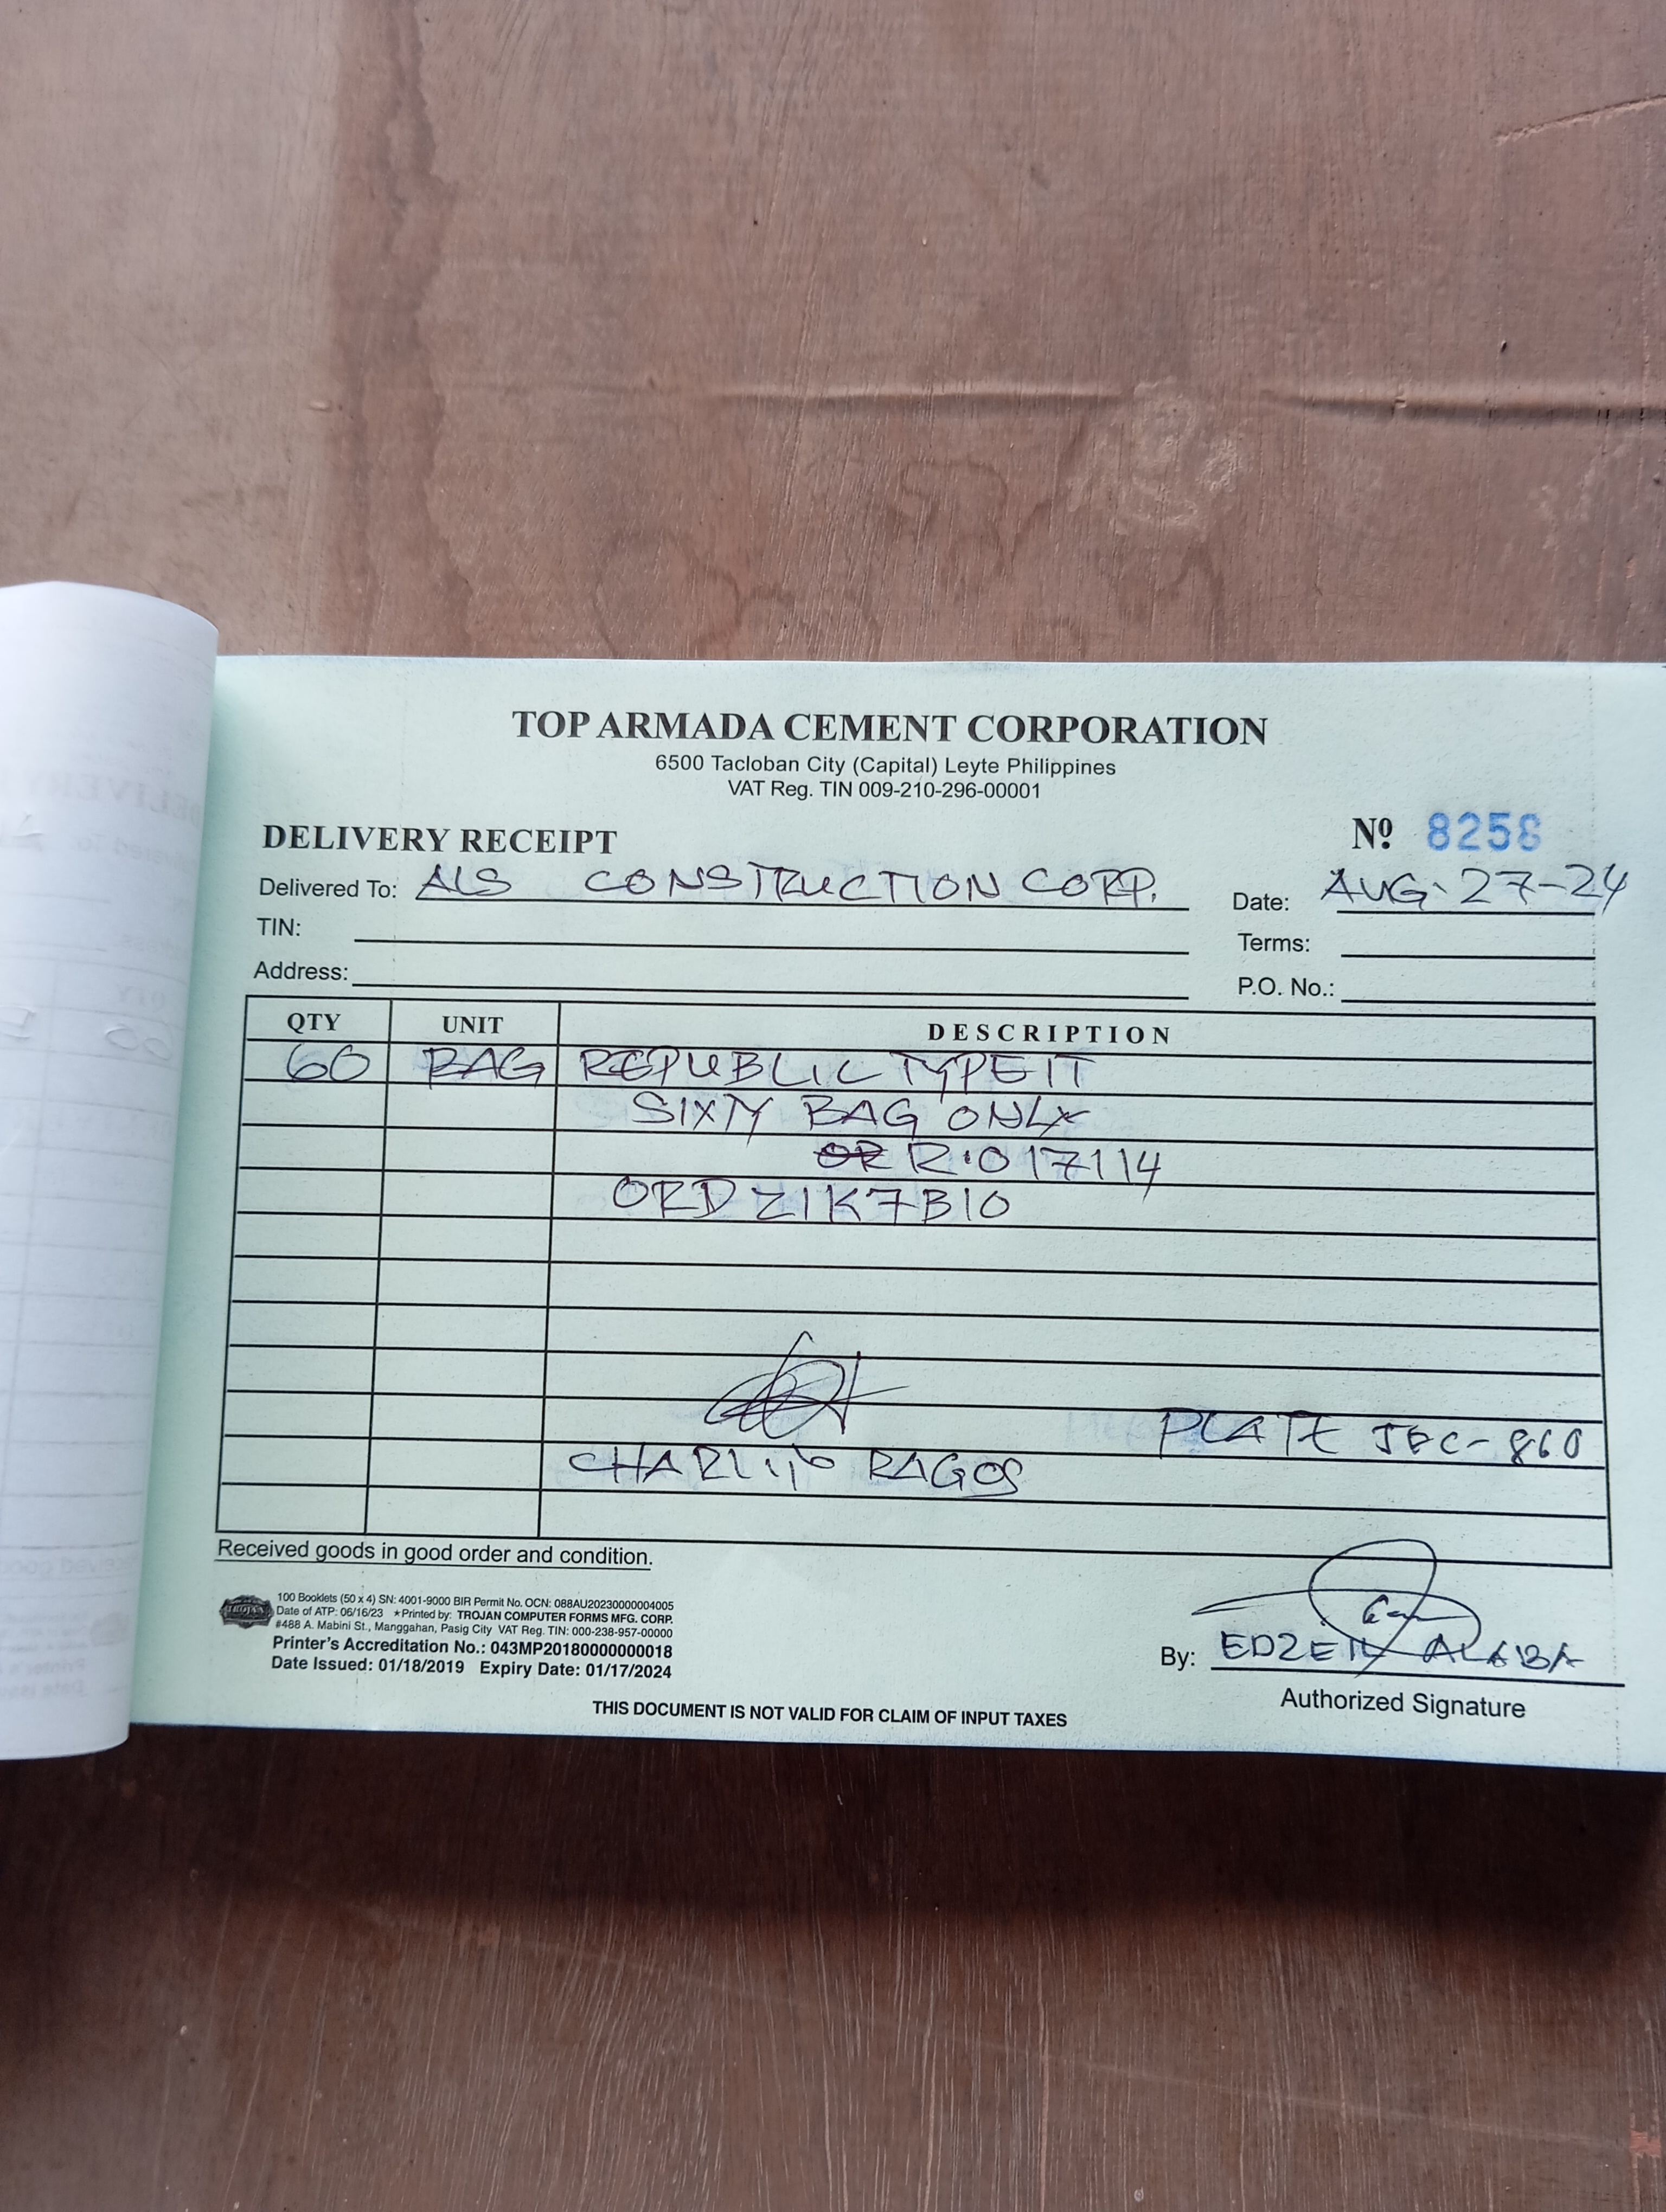 TOP ARMADA CEMENT CORPORATION
6500 Tacloban City (Capital) Leyte Philippines
VAT Reg. TIN 009-210-296-00001
DELIVERY RECEIPT
Nº 8258
Delivered To: ALS CONSTRUCTION CORP.
Date: AUG-27-24
TIN:
Terms:
Address:
P.O. No.:
QTY UNIT DESCRIPTION
60 BAG REPUBLIC TYPE IT
SIXTY BAG ONLY
OR R.017114
ORD Z1K7B10
PLATE JEC-860
RAGOS
Received goods in good order and condition.
TROJAN
100 Booklets (50 x 4) SN: 4001-9000 BIR Permit No. OCN: 088AU20230000004005
Date of ATP: 06/16/23 ★Printed by: TROJAN COMPUTER FORMS MFG. CORP.
#488 A. Mabini St., Manggahan, Pasig City VAT Reg. TIN: 000-238-957-00000
Printer's Accreditation No.: 043MP20180000000018
Date Issued: 01/18/2019 Expiry Date: 01/17/2024
By: EDZEIL ALABA
Authorized Signature
THIS DOCUMENT IS NOT VALID FOR CLAIM OF INPUT TAXES